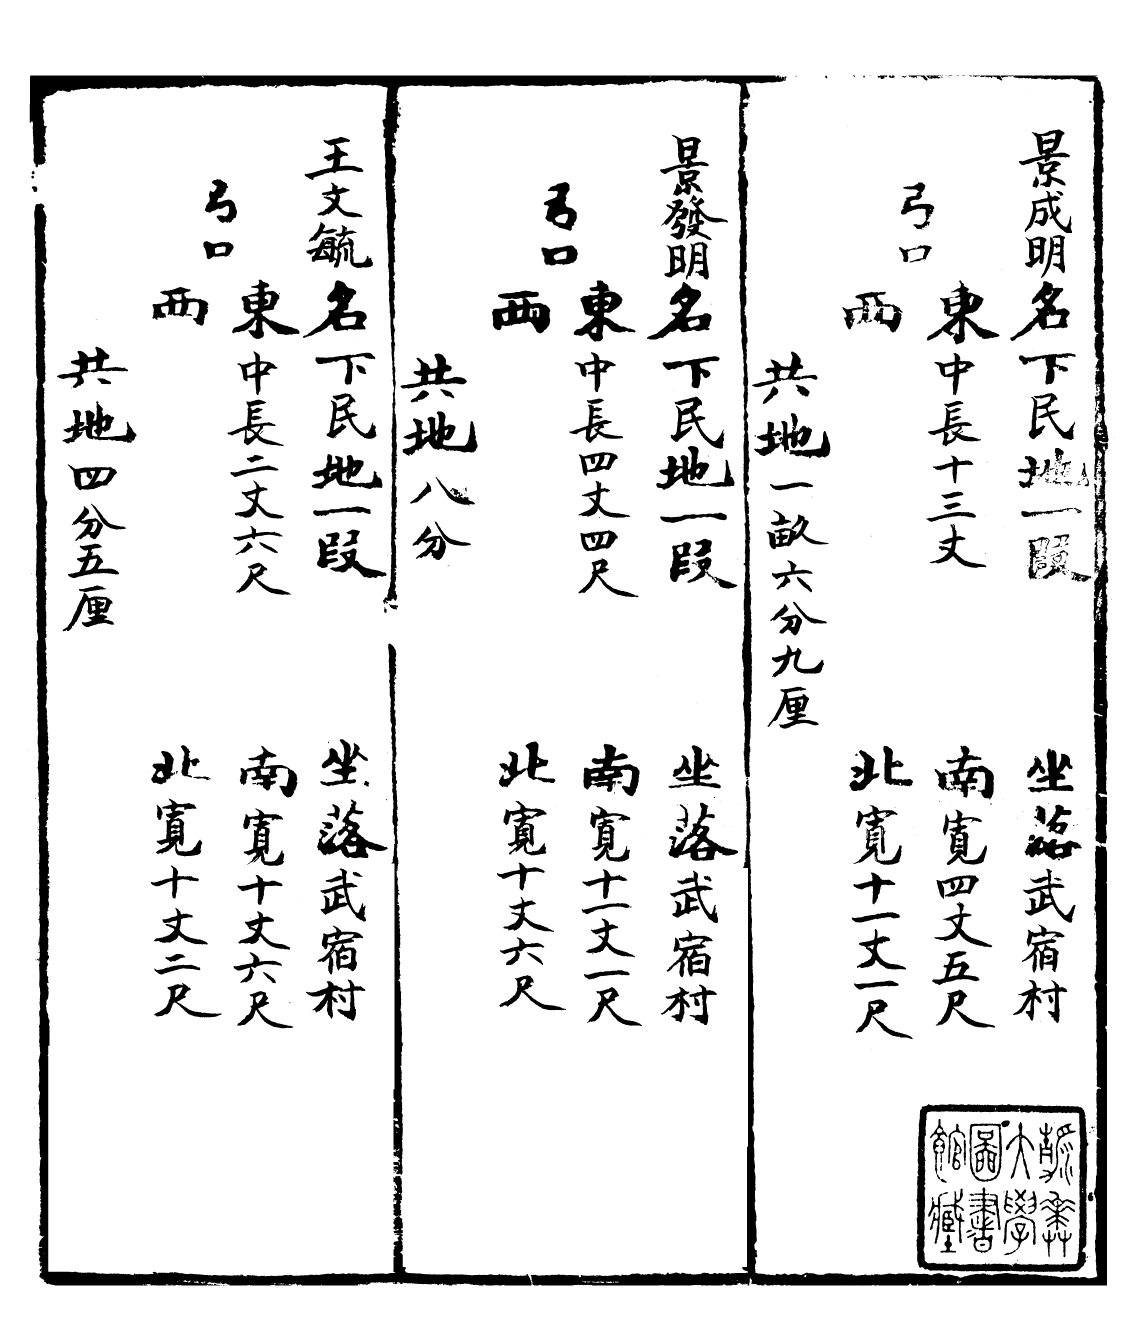 景成明名下民地一段 坐落武宿村
東中長十三丈 南寬四丈五尺
弓口
西 北寬十一丈一尺
共地一畝六分九厘
景發明名下民地一段 坐落武宿村
東中長四丈四尺 南寬十一丈一尺
弓口
西 北寬十丈六尺
共地八分
王文毓名下民地一段 坐落武宿村
東中長二丈六尺 南寬十丈六尺
弓口
西 北寬十丈二尺
共地四分五厘
大學
圖書
館藏